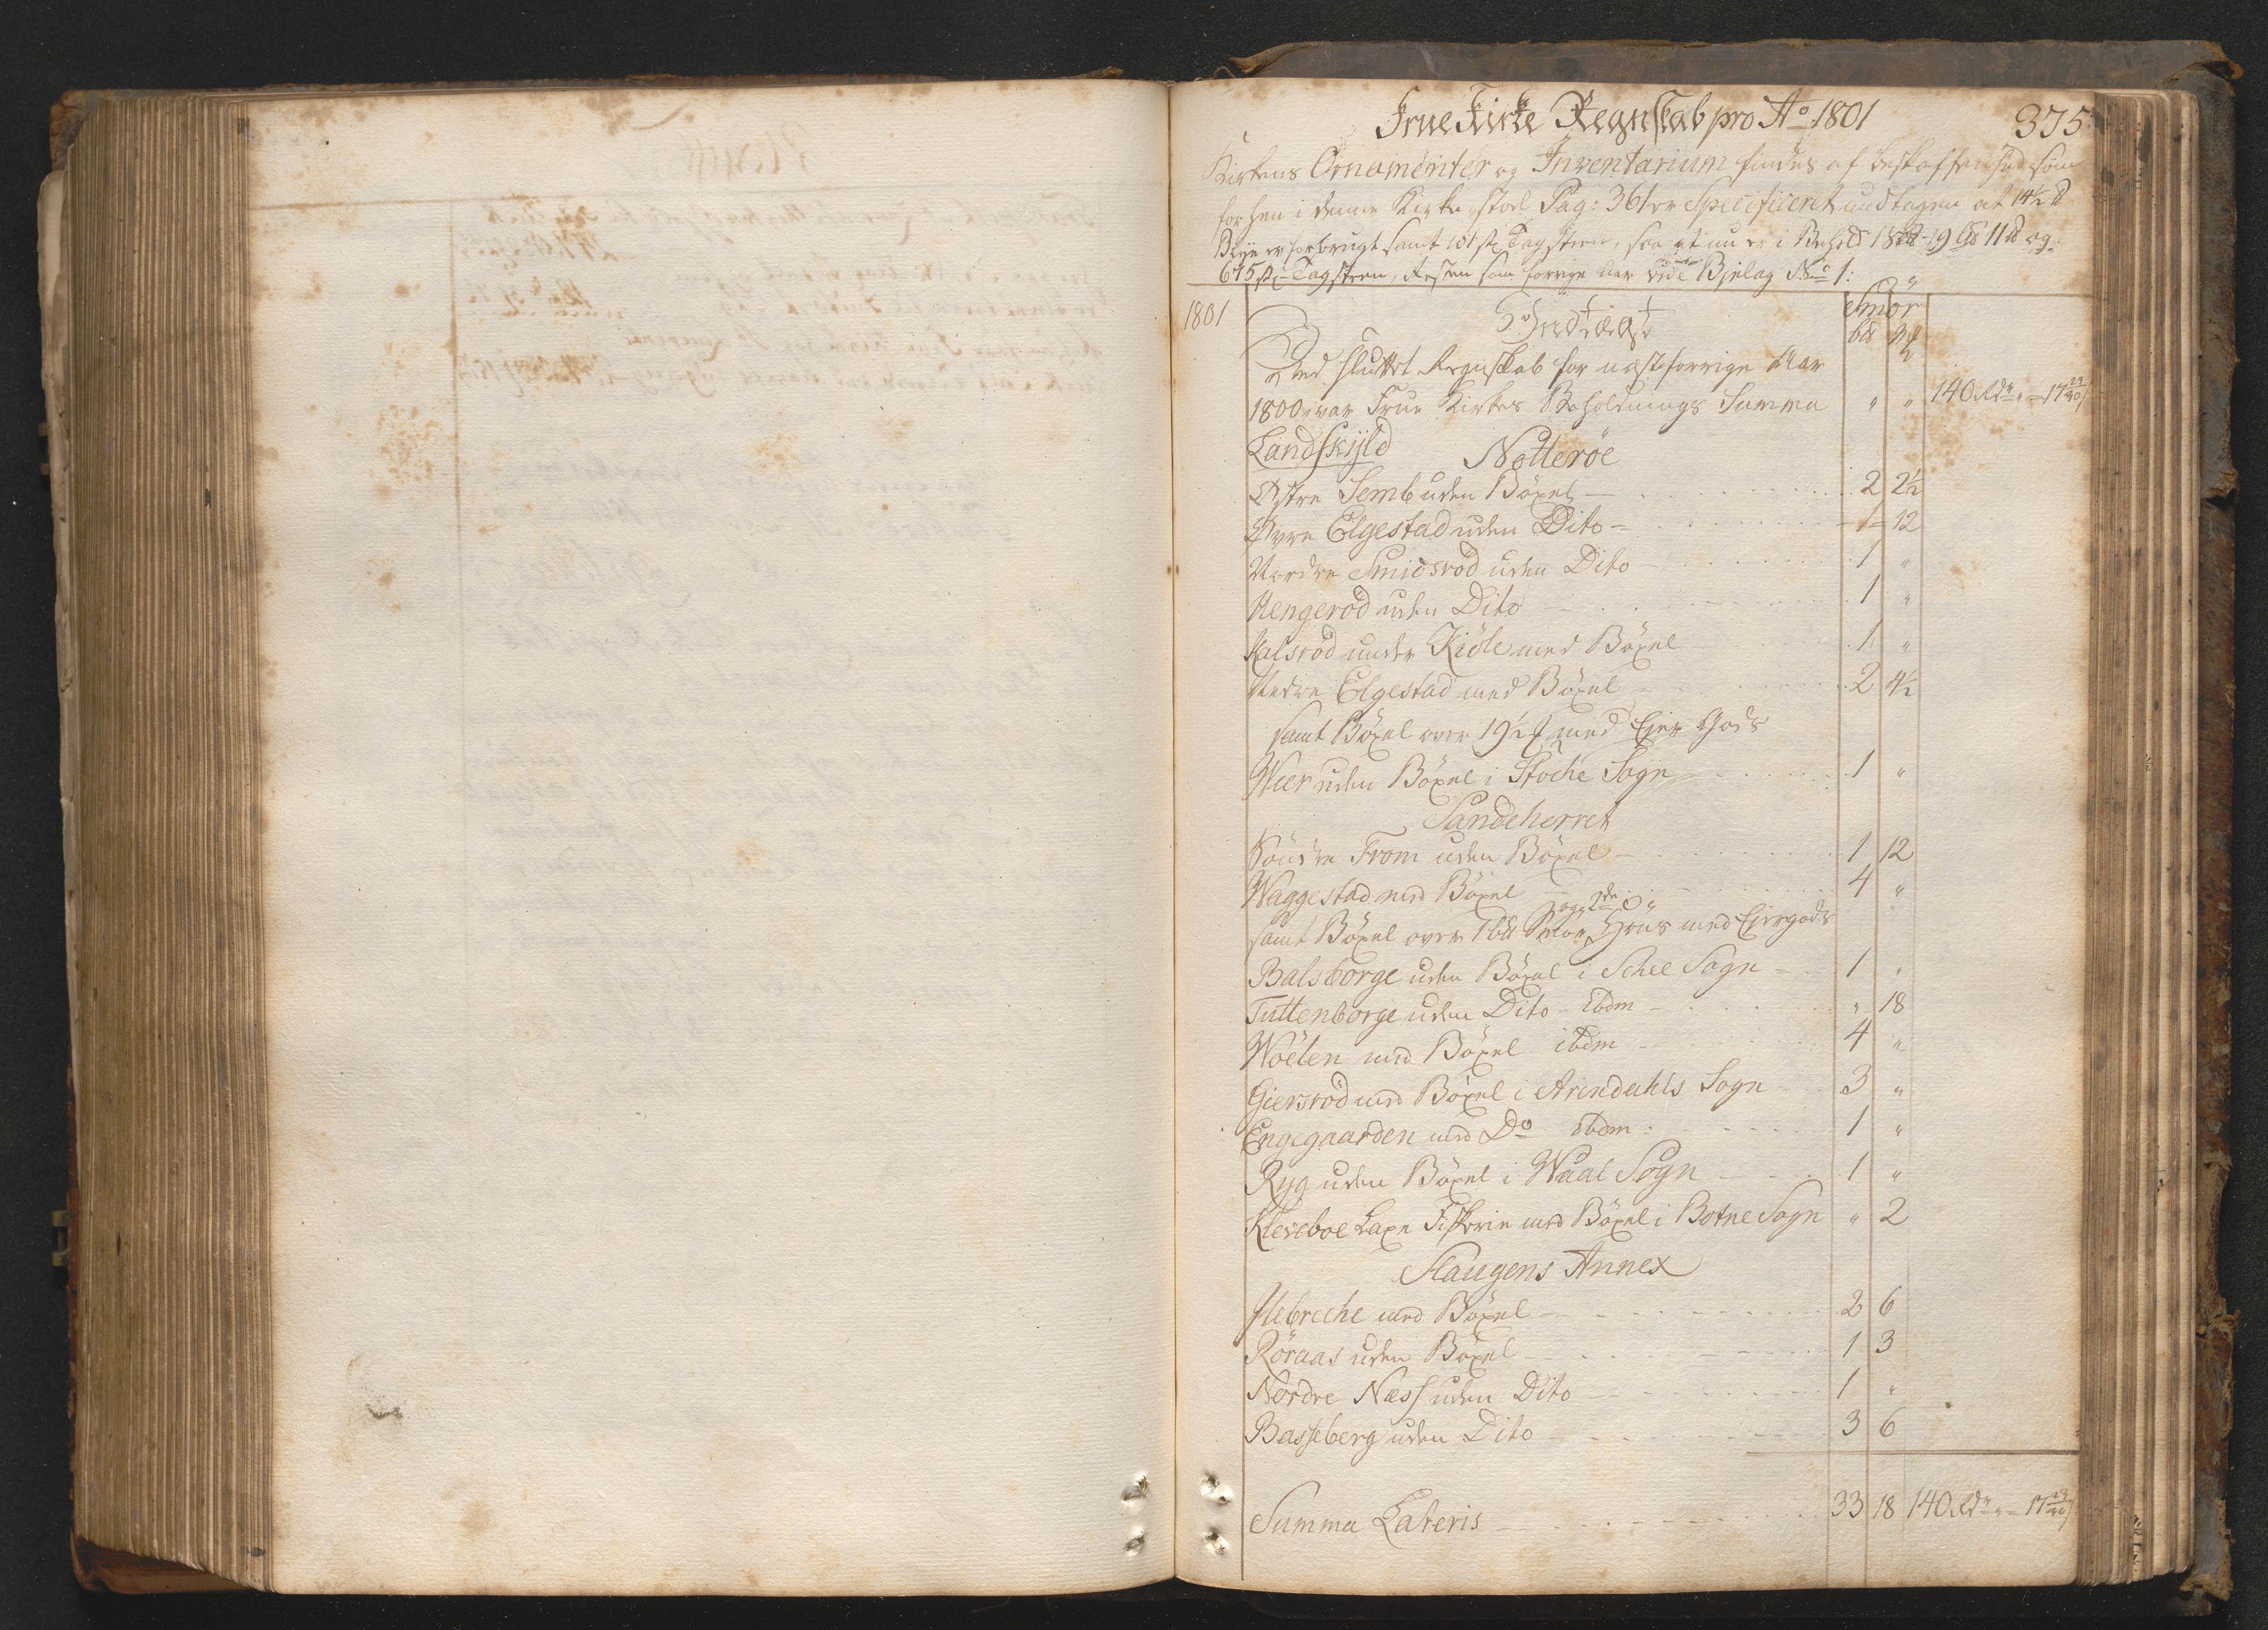 Frue Kirke Regnskab pro Ao 1801
375
Kirkens Ornamenter og Inventarium findes af beskaffenhed som
forhen i denne Kirke-stoel Pag: 361 er Specificeret undtagen at 14½ ℔
Blye er forbrugt samt 101 st Tagsteen, saa at nu er i Behold 1 9 L℔ 11 ℔ og
675 st Tagsteen, Resten som forrige Aar vide Bielag No 1:
1801
Indtægt
Smör
bll
Ved sluttet Regnskab for næstforrige Aar
1800, var Frue Kirkes Beholdnings Summa " " 140 Rdr " 17 23/20
Landskyld Nötteröe
Östre Semb uden Böxel 2 2½
Övre Elgestad uden Dito 1 12
Nordre Smidsröd uden Dito 1 "
Hengeröd uden Dito 1 "
Kalsröd under Kiöle med Böxel 1 "
Nedre Elgestad med Böxel 2 4½
samt Böxel over 19½ med Eier Gods
Weer uden Böxel i Stoche Sogn 1 "
Sandeherret
Söndre From uden Böxel 1 12
Waggestad med Böxel 4 "
og 2de
samt Böxel over 1 bll med Eiergods
Balsborge uden Böxel i Schee Sogn 1 "
Tuttenborge uden Dito ibdm " 18
Wöelen med Böxel ibdm 4 "
Giersröd med Böxel i Arendahls Sogn 3 "
Engegaarden med Do ibdm: 1 "
Ryg uden Böxel i Waal Sogn 1 "
Kleveboe Laxe Fiskerie med Böxel i Botne Sogn " 2
Slaugens Annex
Ilebreche med Böxel 2 6
Röraas uden Böxel 1 3
Nordre Næss uden Dito 1 "
Basseberg uden Dito 3 6
Summa Lateris 33 18 140 Rdr " 17 23/20